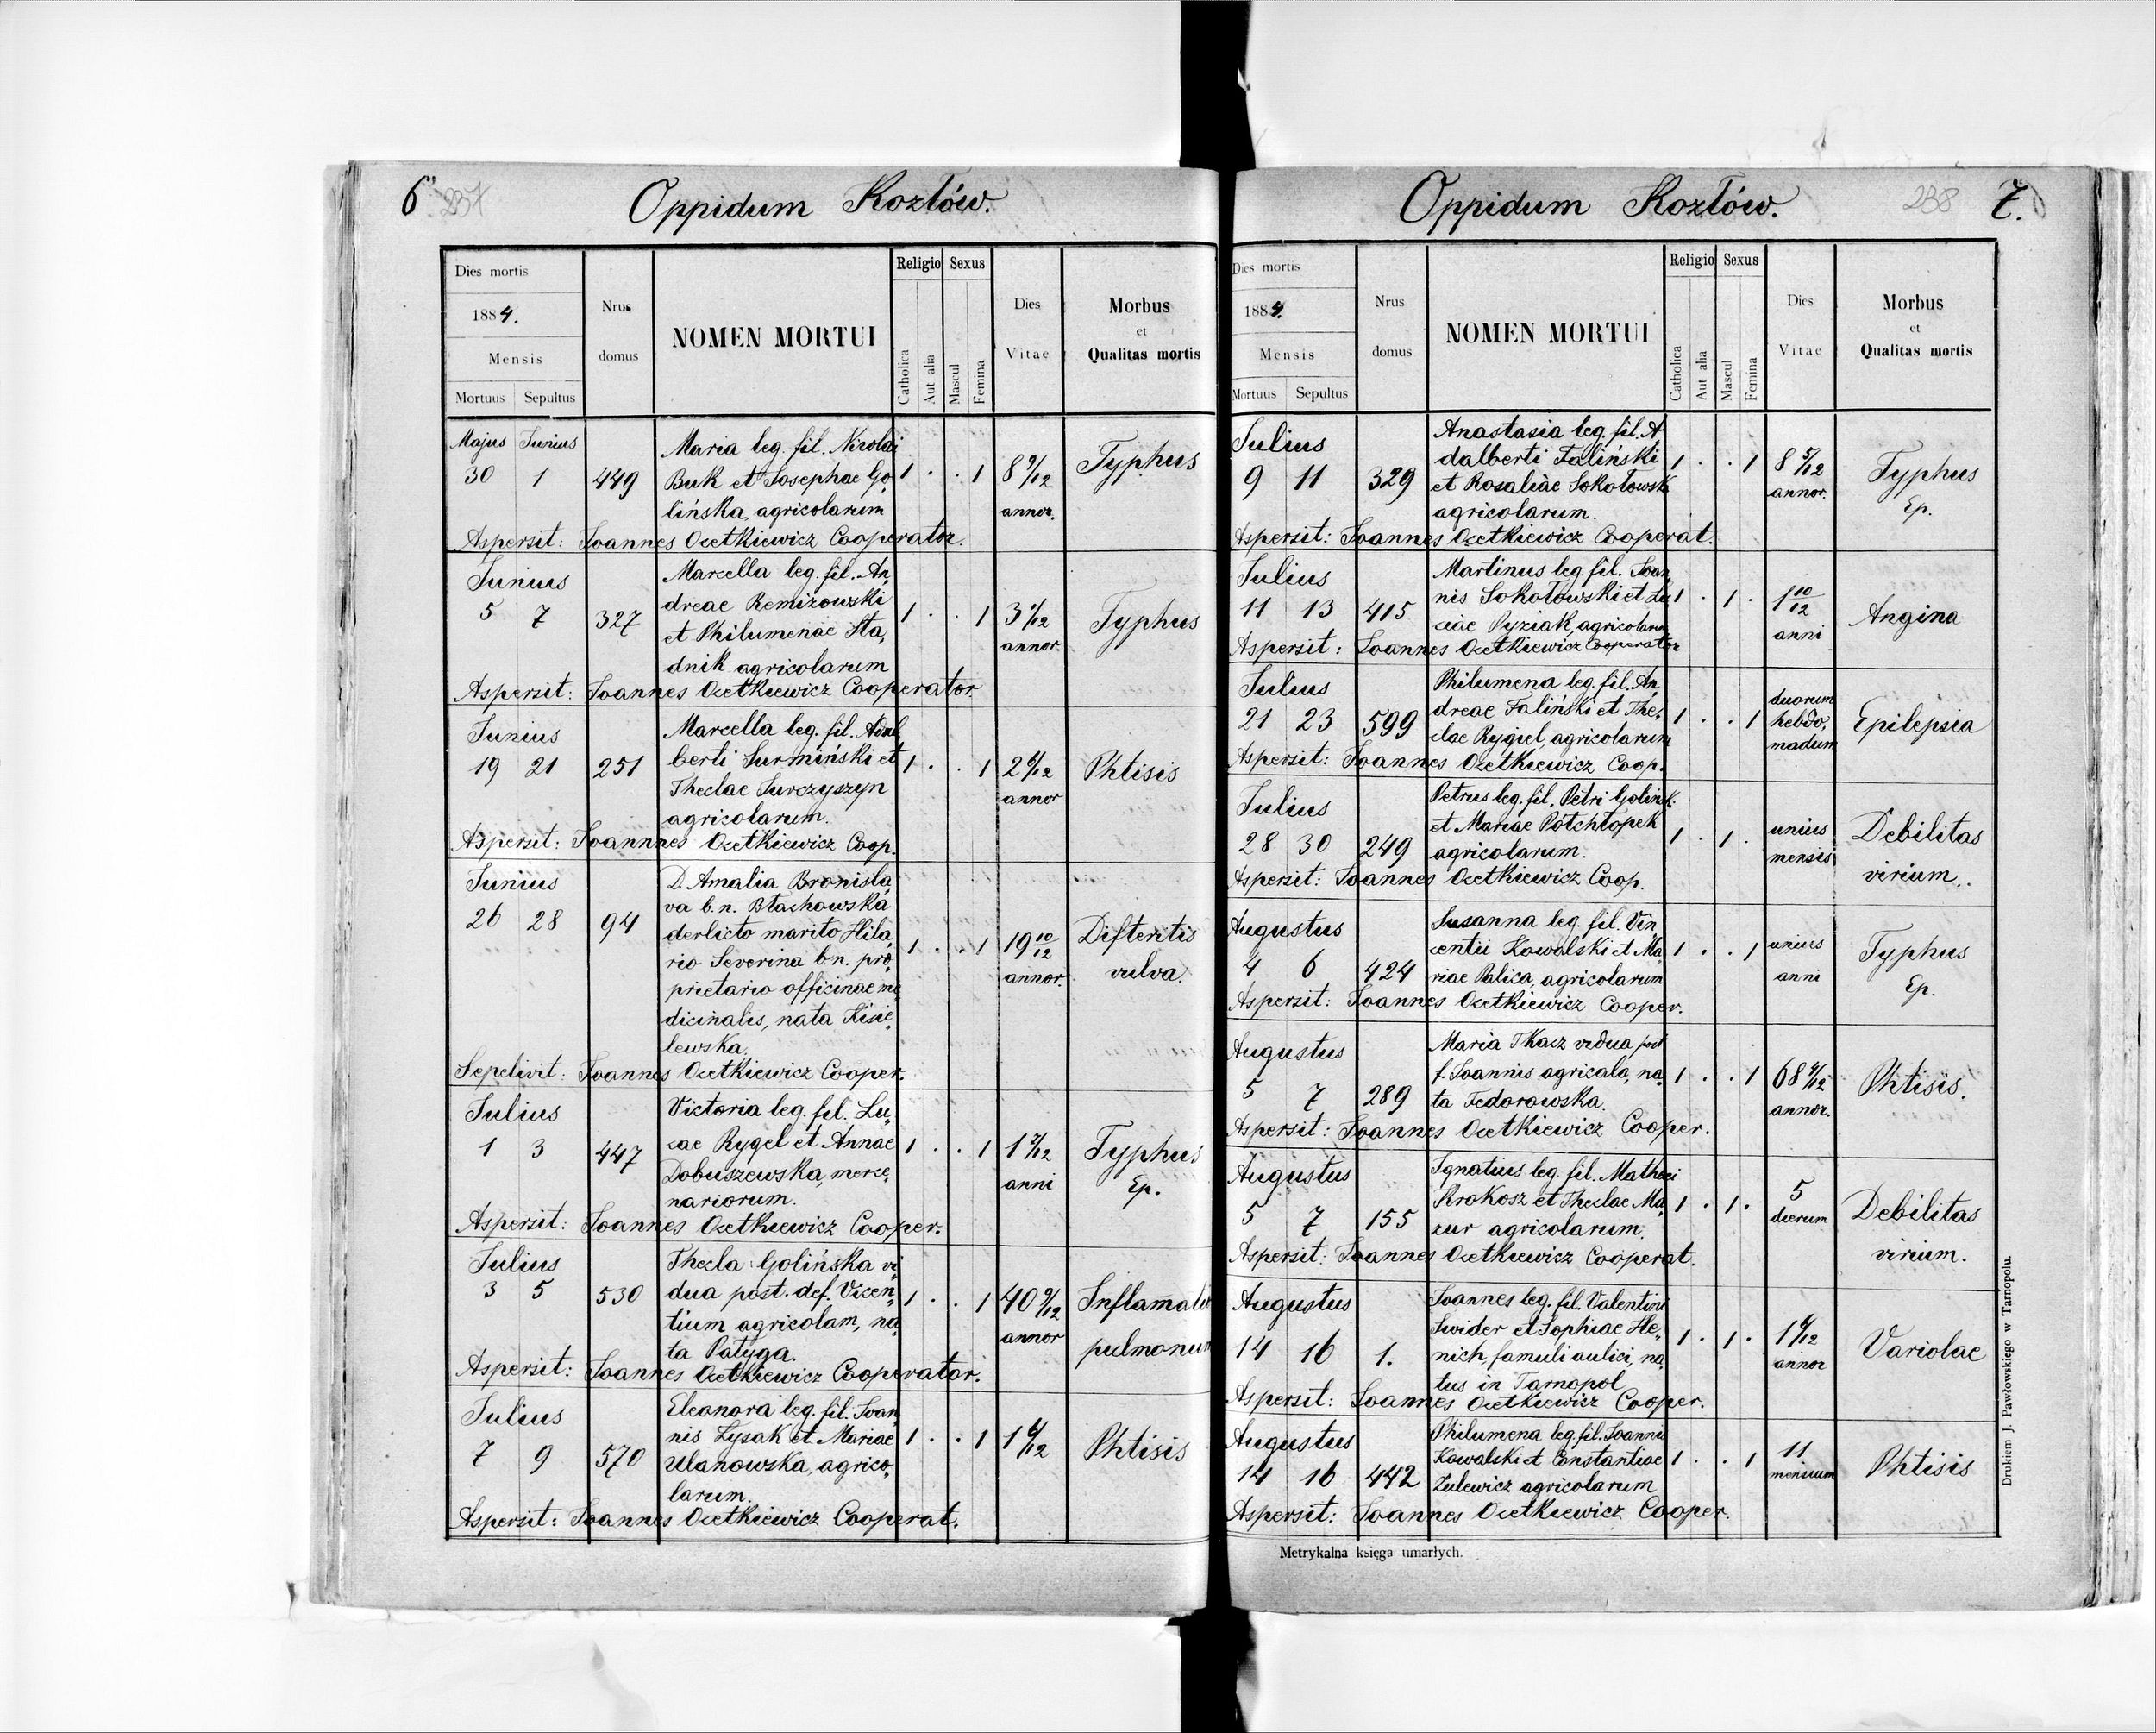 6
237
Oppidum Kozłów.
Dies mortis
1884.
Mensis
Mortuus Sepultus
Nrus
domus
NOMEN MORTUI
Religio Sexus
Catholica
Aut alia
Mascul
Femina
Dies
Vitae
Morbus
et
Qualitas mortis
Majus Junius
30 1 449
Maria leg. fil. Nicolai
Buk et Josephae Go„
lińska, agricolarum
1 . . 1
8 9/12
annor.
Typhus
Aspersit: Joannes Ocetkiewicz Cooperator.
Junius
5 7 327
Marcella leg. fil. An„
dreae Remizowski
et Philumenae Sta„
dnik agricolarum
1 . . 1
3 1/12
annor.
Typhus
Aspersit: Joannes Ocetkiewicz Cooperator.
Junius
19 21 251
Marcella leg. fil. Adal„
berti Surmiński et
Theclae Surczyszyn
agricolarum.
1 . . 1
2 6/12
annor
Phtisis
Aspersit: Joannnes Ocetkiewicz Coop.
Junius
26 28 94
D. Amalia Bronisla„
va b. n. Błachowska
derlicto marito Hila„
rio Severina b. n. pro„
prietario officinae me„
dicinalis, nata Kisie„
lewska.
1 . . 1
19 10/12
annor.
Difteritis
vulva.
Sepelivit: Joannes Ocetkiewicz Cooper.
Julius
1 3 447
Victoria leg. fil. Lu„
cae Rygel et Annae
Dobuszewska, merce„
nariorum.
1 . . 1
1 7/12
anni
Typhus
Ep.
Aspersit: Joannes Ocetkiewicz Cooper.
Julius
3 5 530
Thecla Golińska vi„
dua post. def. Vicen„
tium agricolam, na„
ta Patyga.
1 . . 1
40 9/12
annor
pulmonum
Aspersit: Joannes Ocetkiewicz Cooperator.
Julius
7 9 570
Eleonora leg. fil. Joan„
nis Łysak et Mariae
Ulanowska, agrico„
larum.
1 . . 1
1 6/12
Phtisis
Aspersit: Joannes Ocetkiewicz Cooperat.
Oppidum Kozłów.
238
7.
Dies mortis
1884.
Mensis
Mortuus Sepultus
Nrus
domus
NOMEN MORTUI
Religio Sexus
Catholica
Aut alia
Mascul
Femina
Dies
Vitae
Morbus
et
Qualitas mortis
Julius
9 11 329
Anastasia leg. fil. A„
dalberti Faliński
et Rosaliae Sokołowsk
agricolarum.
1 . . 1
8 5/12
annor.
Typhus
Ep.
Aspersit: Joannes Ocetkiewicz Cooperat.
Julius
11 13 415
Martinus leg. fil. Joan„
nis Sokołowski et Lu„
ciae Pyziak, agricolarum
1 . 1 .
1 10/12
anni
Angina
Aspersit: Joannes Ocetkiewicz Cooperator
Julius
21 23 599
Philumena leg. fil. An„
dreae Faliński et The„
clae Rygiel, agricolarum
1 . . 1
duorum
hebdo„
madum
Epilepsia
Aspersit: Joannes Ocetkiewicz Coop.
Julius
28 30 249
Petrus leg. fil. Petri Golińsk.
et Mariae Półchłopek
agricolarum.
1 . 1 .
unius
mensis
Debilitas
virium.
Aspersit: Joannes Ocetkiewicz Coop.
Augustus
4 6 424
Susanna leg. fil. Vin„
centii Kowalski et Ma„
riae Palica, agricolarum
1 . . 1
unius
anni
Typhus
Ep.
Aspersit: Joannes Ocetkiewicz Cooper.
Augustus
5 7 289
Maria Tkacz vidua post
f. Joannis agricola, na„
ta Fedorowska.
1 . . 1
annor.
Phtisis.
Aspersit: Joannes Ocetkiewicz Cooper.
Augustus
5 7 155
Ignatius leg. fil. Mathaei
Krokosz et Theclae Ma„
zur agricolarum.
1 . 1 .
5
dierum
Debilitas
virium.
Aspersit: Joannes Ocetkiewicz Cooperat.
Augustus
14 16 1.
Joannes leg. fil. Valentini
Swider et Sophiae He„
nich famuli aulici, na„
tus in Tarnopol
1 . 1 .
1 6/12
annor
Variolae
Aspersit: Joannes Ocetkiewicz Cooper.
Augustus
14 16 442
Philumena leg. fil. Joannis
Kowalski et Constantiae
Zulewicz agricolarum
1 . . 1
11
mensium
Phtisis
Aspersit: Joannes Ocetkiewicz Cooper.
Metrykalna księga umarłych.
Drukiem J. Pawłowskiego w Tarnopolu.